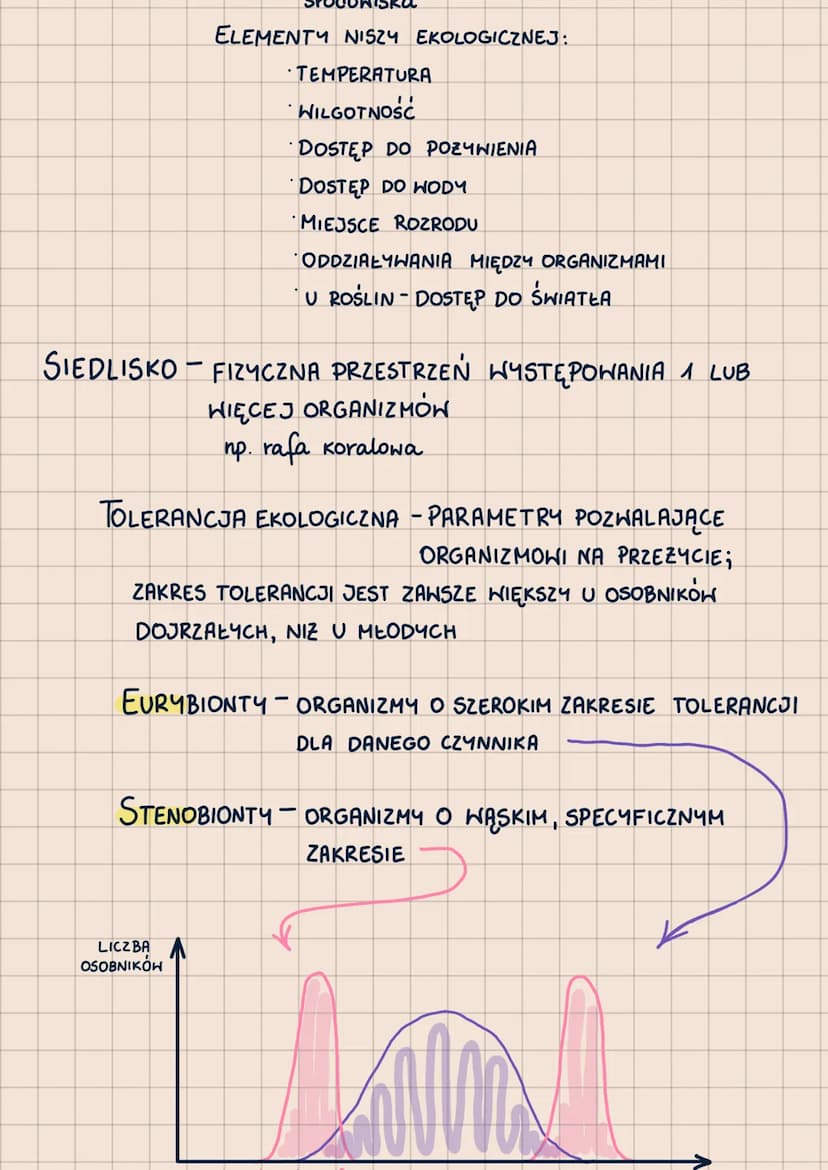 środowiska
ELEMENTY NISZY EKOLOGICZNEJ:
· TEMPERATURA
· WILGOTNOŚĆ
· DOSTĘP DO POŻYWIENIA
· DOSTĘP DO WODY
· MIEJSCE ROZRODU
· ODDZIAŁYWANIA MIĘDZY ORGANIZMAMI
· U ROŚLIN - DOSTĘP DO ŚWIATŁA
SIEDLISKO - FIZYCZNA PRZESTRZEŃ WYSTĘPOWANIA 1 LUB
WIĘCEJ ORGANIZMÓW
np. rafa koralowa
TOLERANCJA EKOLOGICZNA - PARAMETRY POZWALAJĄCE
ORGANIZMOWI NA PRZEŻYCIE;
ZAKRES TOLERANCJI JEST ZAWSZE WIĘKSZY U OSOBNIKÓW
DOJRZAŁYCH, NIŻ U MŁODYCH
EURYBIONTY - ORGANIZMY O SZEROKIM ZAKRESIE TOLERANCJI
DLA DANEGO CZYNNIKA
STENOBIONTY - ORGANIZMY O WĄSKIM, SPECYFICZNYM
ZAKRESIE
LICZBA
OSOBNIKÓW